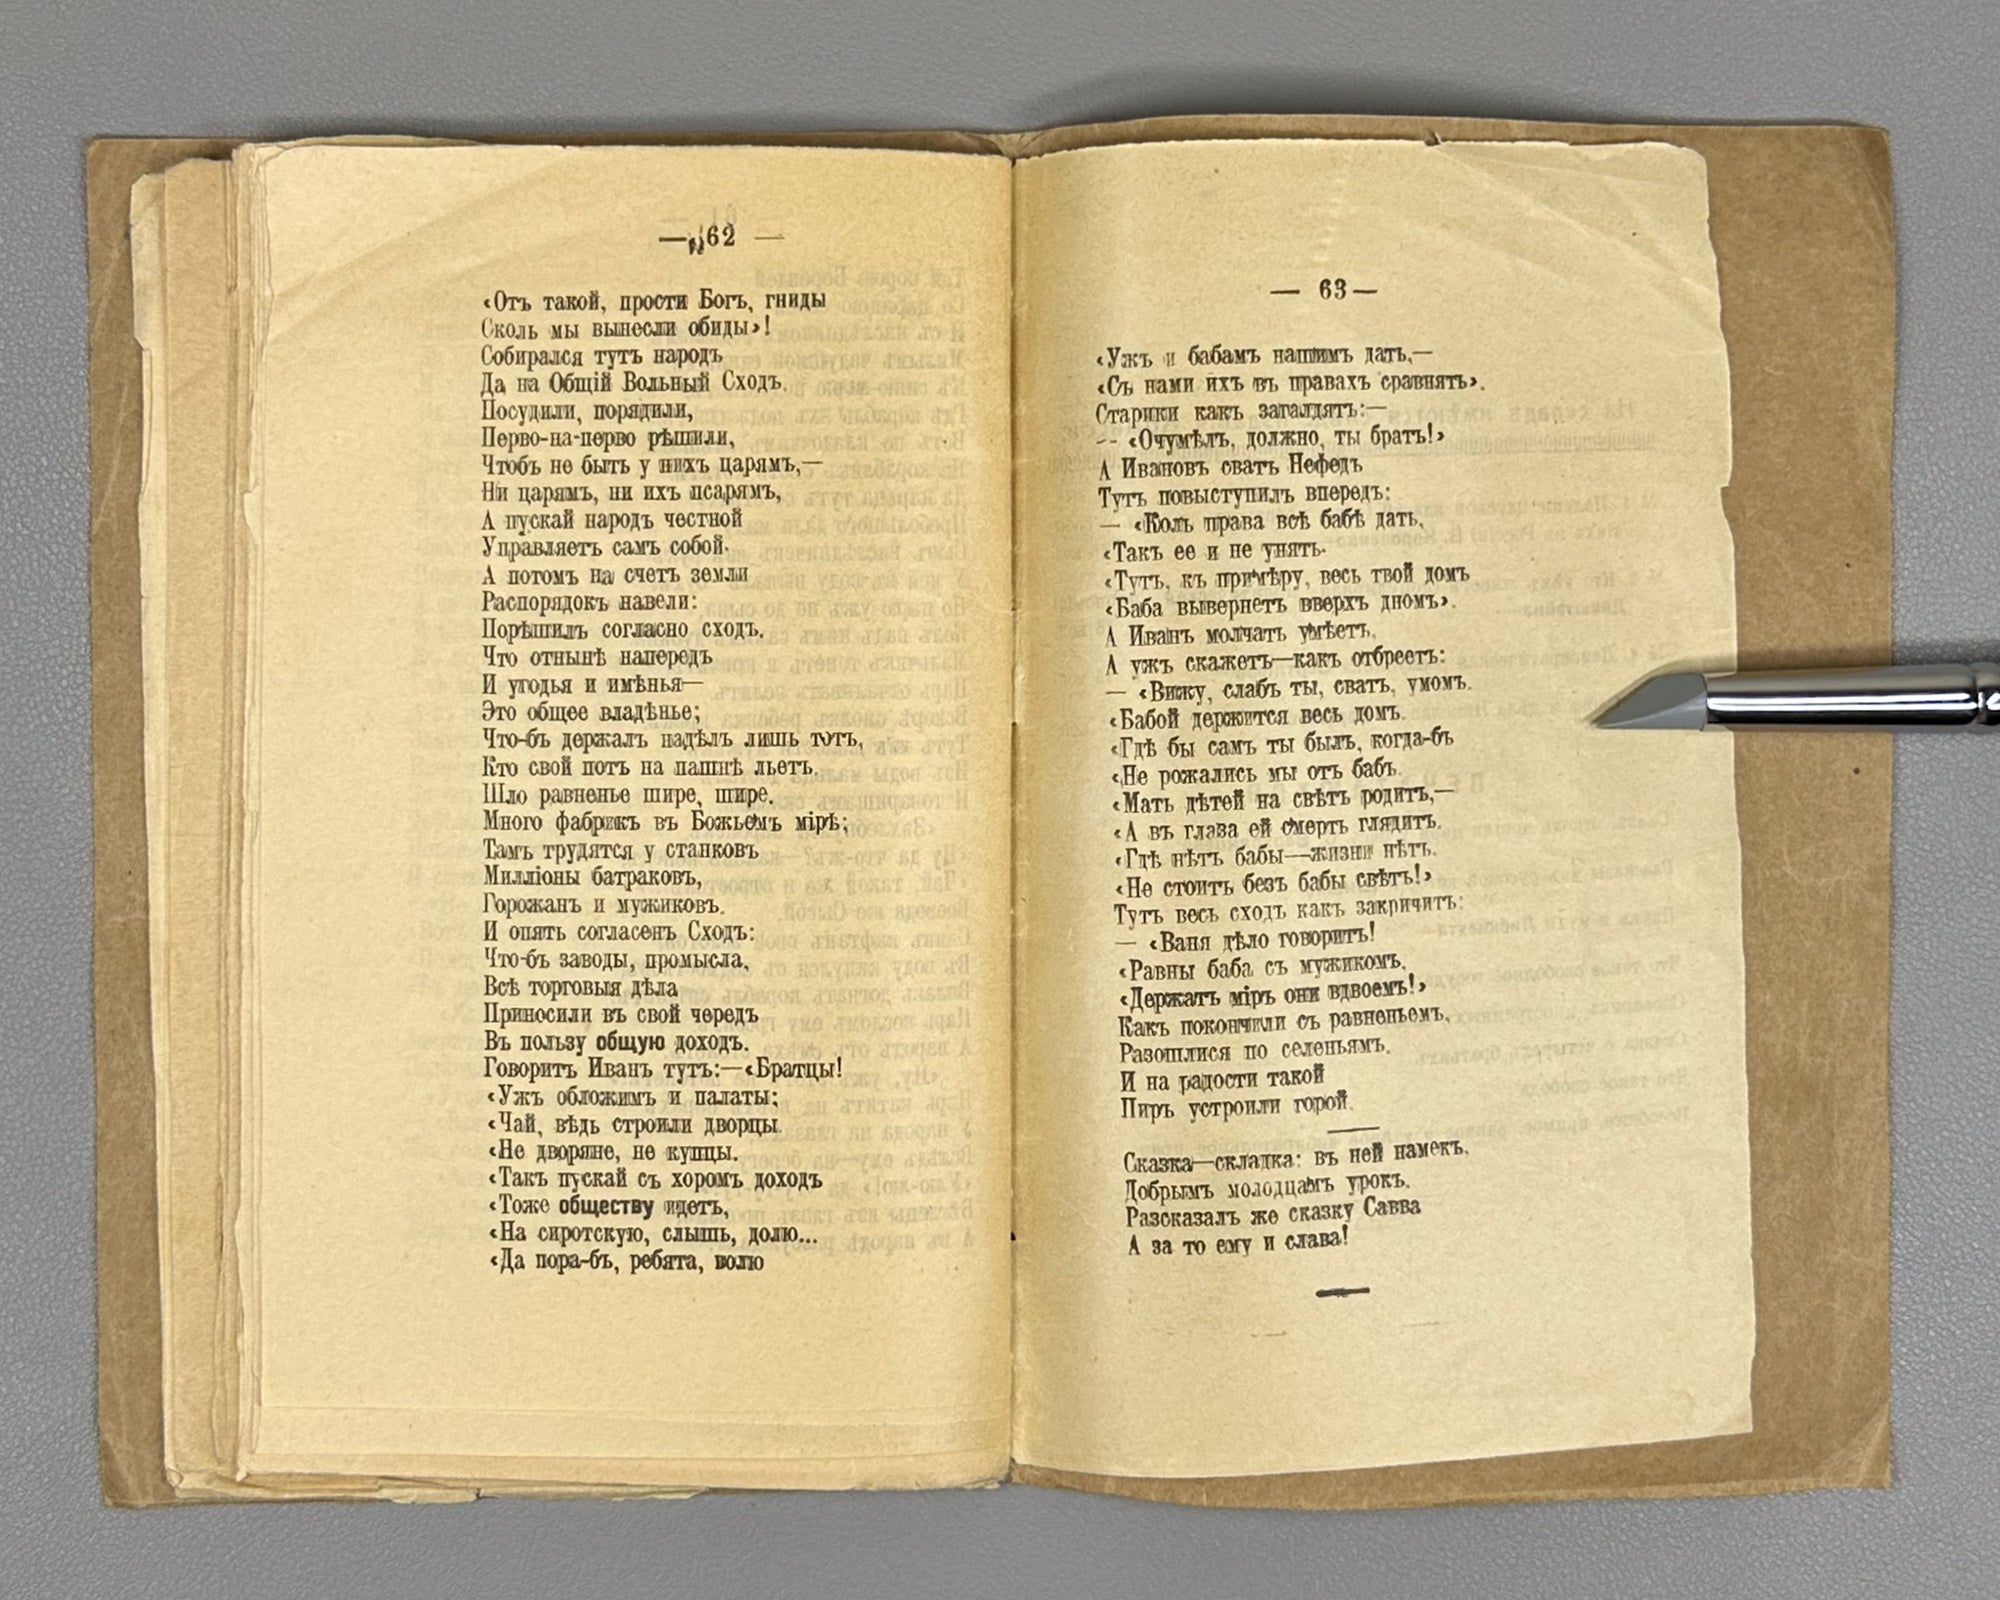 — 62 —
«Отъ такой, прости Богъ, гниды
Сколь мы вынесли обиды»!
Собирался тутъ народъ
Да на Общій Вольный Сходъ.
Посудили, порядили,
Перво-на-перво рѣшили,
Чтобъ не быть у нихъ царямъ,—
Ни царямъ, ни ихъ псарямъ,
А пускай народъ честной
Управляетъ самъ собой.
А потомъ на счетъ земли
Распорядокъ навели:
Порѣшилъ согласно сходъ,
Что отнынѣ напередъ
И угодья и имѣнья—
Это общее владѣнье;
Что-бъ держалъ надѣлъ лишь тотъ,
Кто свой потъ на пашнѣ льетъ.
Шло равненье шире, шире.
Много фабрикъ въ Божьемъ мірѣ;
Тамъ трудятся у станковъ
Милліоны батраковъ,
Горожанъ и мужиковъ.
И опять согласенъ Сходъ:
Что-бъ заводы, промысла,
Всѣ торговыя дѣла
Приносили въ свой чередъ
Въ пользу общую доходъ.
Говоритъ Иванъ тутъ:—«Братцы!
«Ужъ обложимъ и палаты;
«Чай, вѣдь строили дворцы
«Не дворяне, не купцы.
«Такъ пускай съ хоромъ доходъ
«Тоже обществу идетъ,
«На сиротскую, слышь, долю...
«Да пора-бъ, ребята, волю
— 63 —
«Ужъ и бабамъ нашимъ дать,—
«Съ нами ихъ въ правахъ сравнять».
Старики какъ загалдятъ:—
— «Очумѣлъ, должно, ты братъ!»
А Ивановъ сватъ Нефедъ
Тутъ повыступилъ впередъ:
— «Коль права всѣ бабѣ дать,
«Такъ ее и не унять.
«Тутъ, къ примѣру, весь твой домъ
«Баба вывернетъ вверхъ дномъ».
А Иванъ молчать умѣетъ,
А ужъ скажетъ—какъ отбреетъ:
— «Вижу, слабъ ты, сватъ, умомъ.
«Бабой держится весь домъ.
«Гдѣ бы самъ ты былъ, когда-бъ
«Не рожались мы отъ бабъ.
«Мать дѣтей на свѣтъ родитъ,—
«А въ глаза ей смерть глядитъ.
«Гдѣ нѣтъ бабы—жизни нѣтъ.
«Не стоитъ безъ бабы свѣтъ!»
Тутъ весь сходъ какъ закричитъ:
— «Ваня дѣло говоритъ!
«Равны баба съ мужикомъ,
«Держатъ міръ они вдвоемъ!»
Какъ покончили съ равненьемъ,
Разошлися по селеньямъ.
И на радости такой
Пиръ устроили горой.
Сказка—складка: въ ней намекъ,
Добрымъ молодцамъ урокъ.
Разсказалъ же сказку Савва
А за то ему и слава!